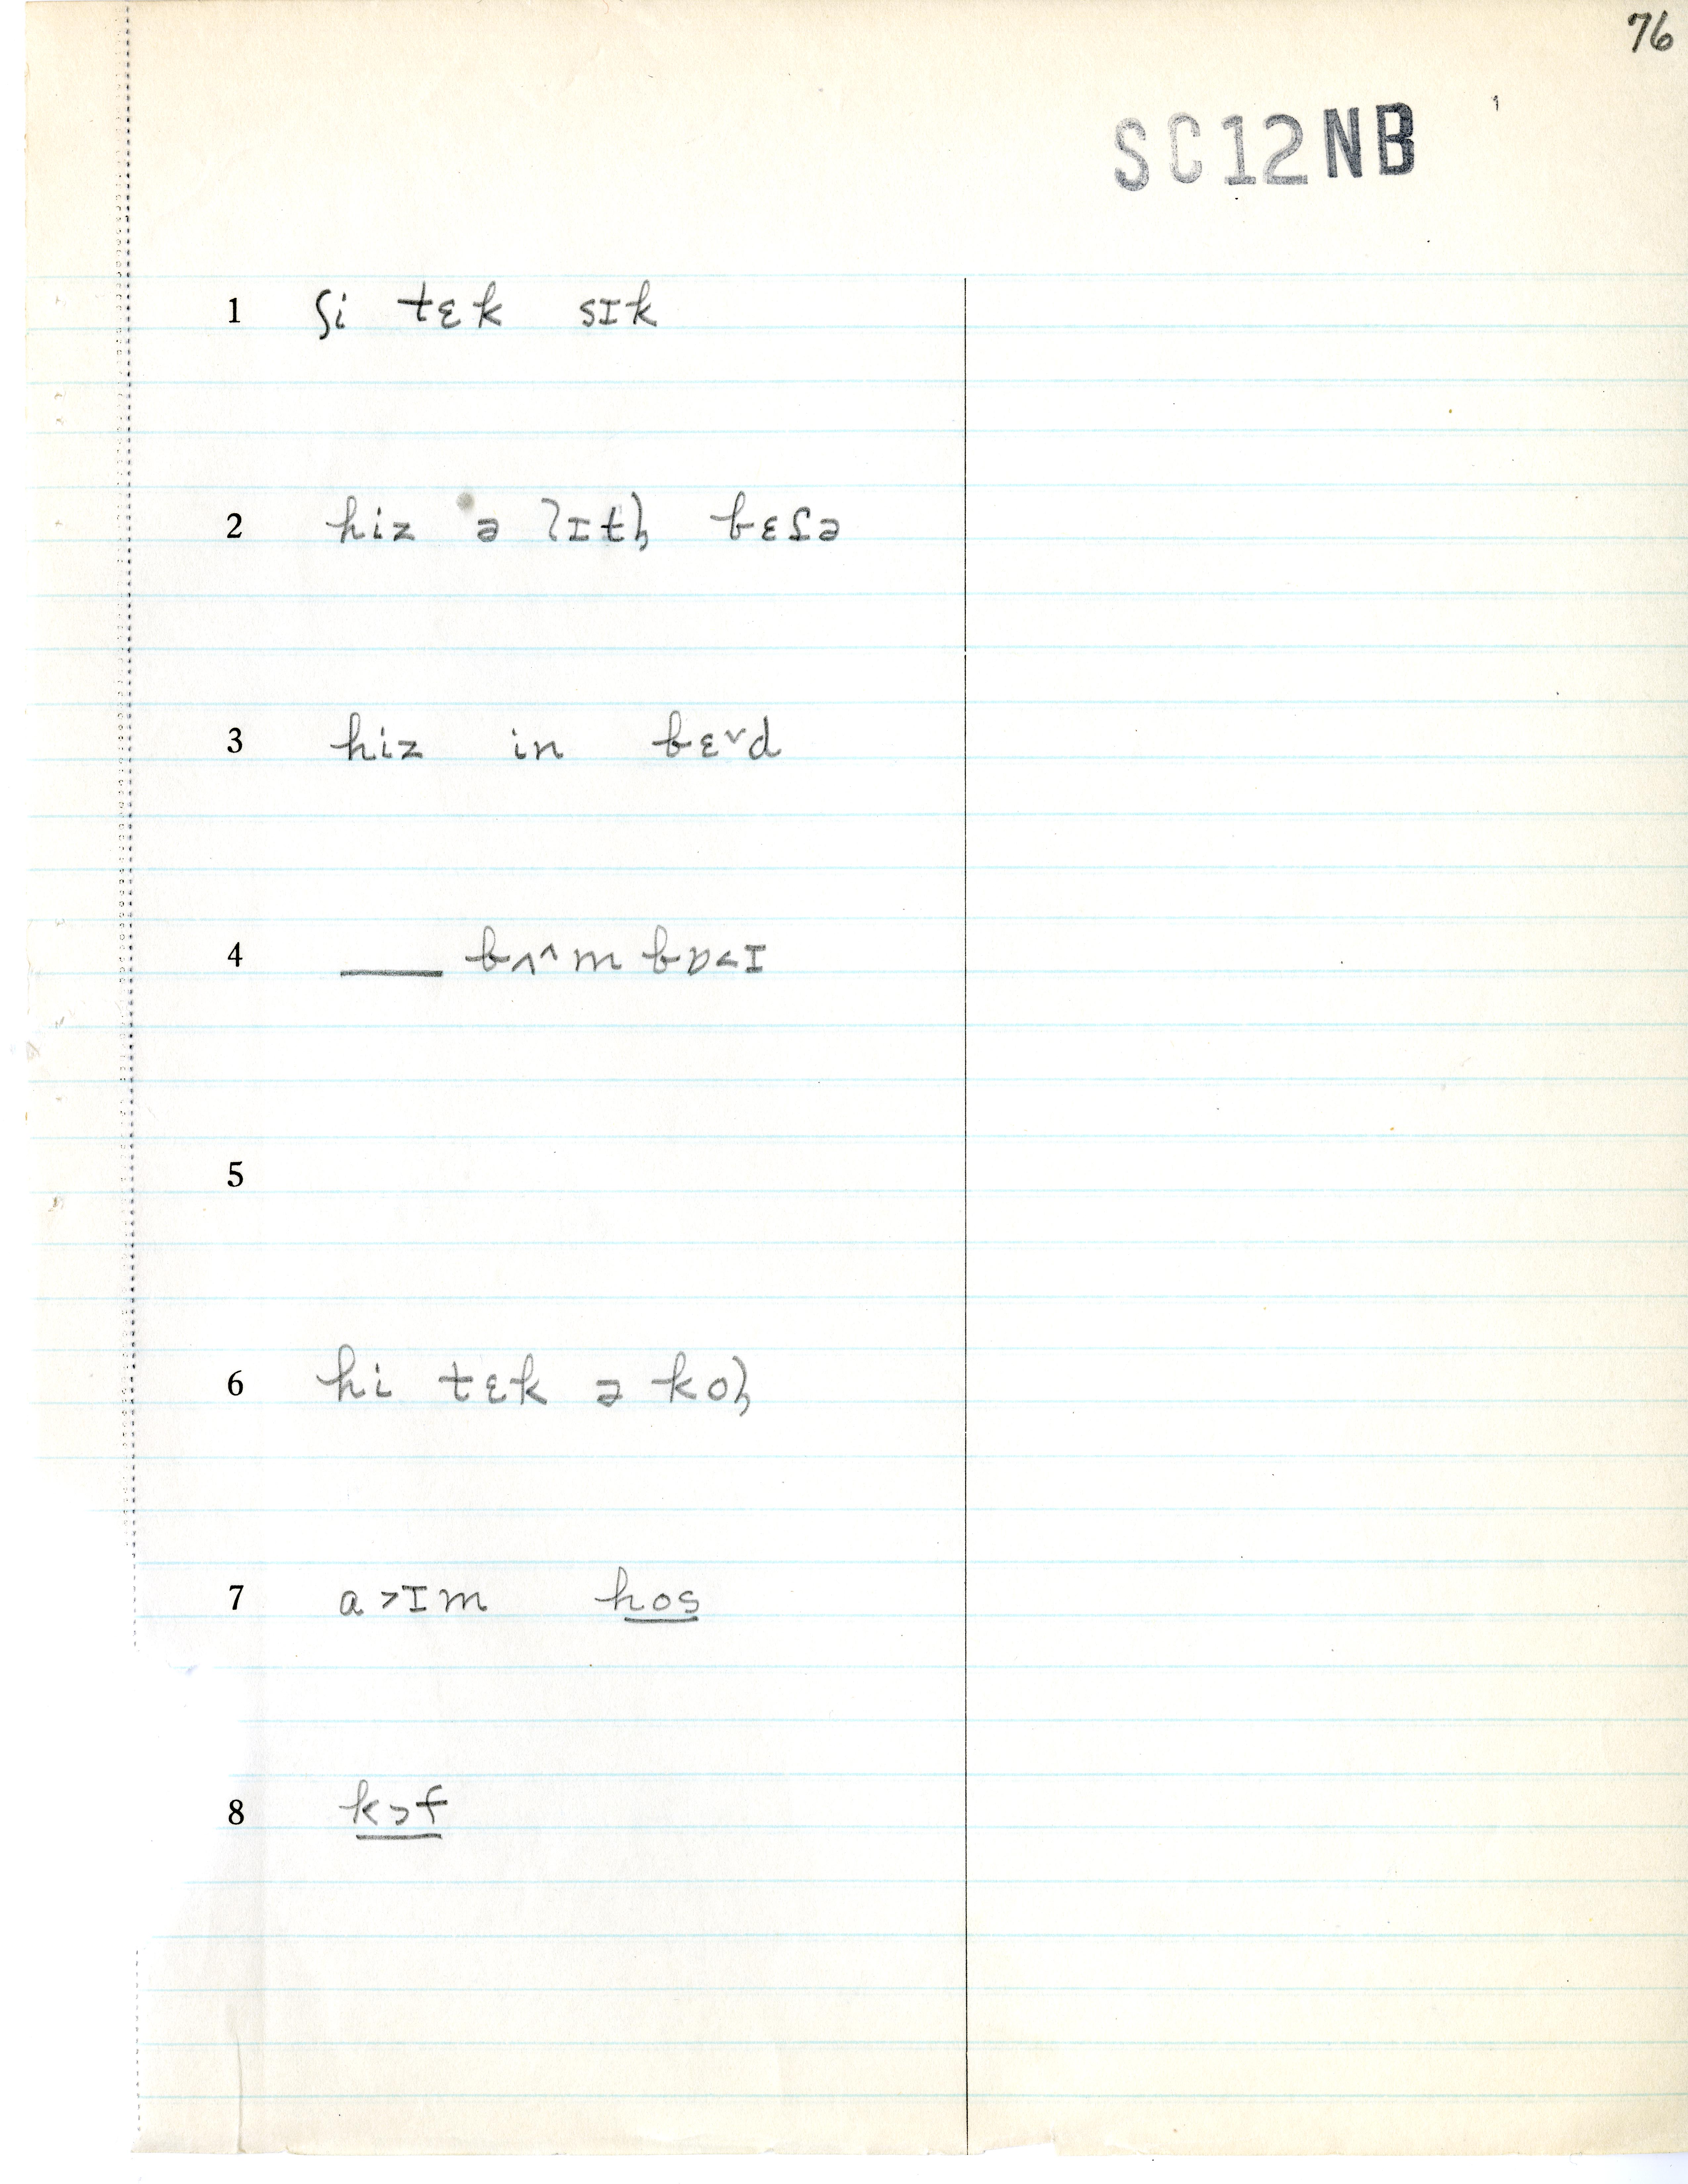 76
SC12NB
1 ʃi tɛk sɪk
2 hiz ə lɪtl̩ bɛʃə
3 hiz in bɛ˅d
4 ___ bʌ^m bɒ<ɪ
5
6 hi tɛk ə kol̩
7 a>ɪm hos
8 kɔf